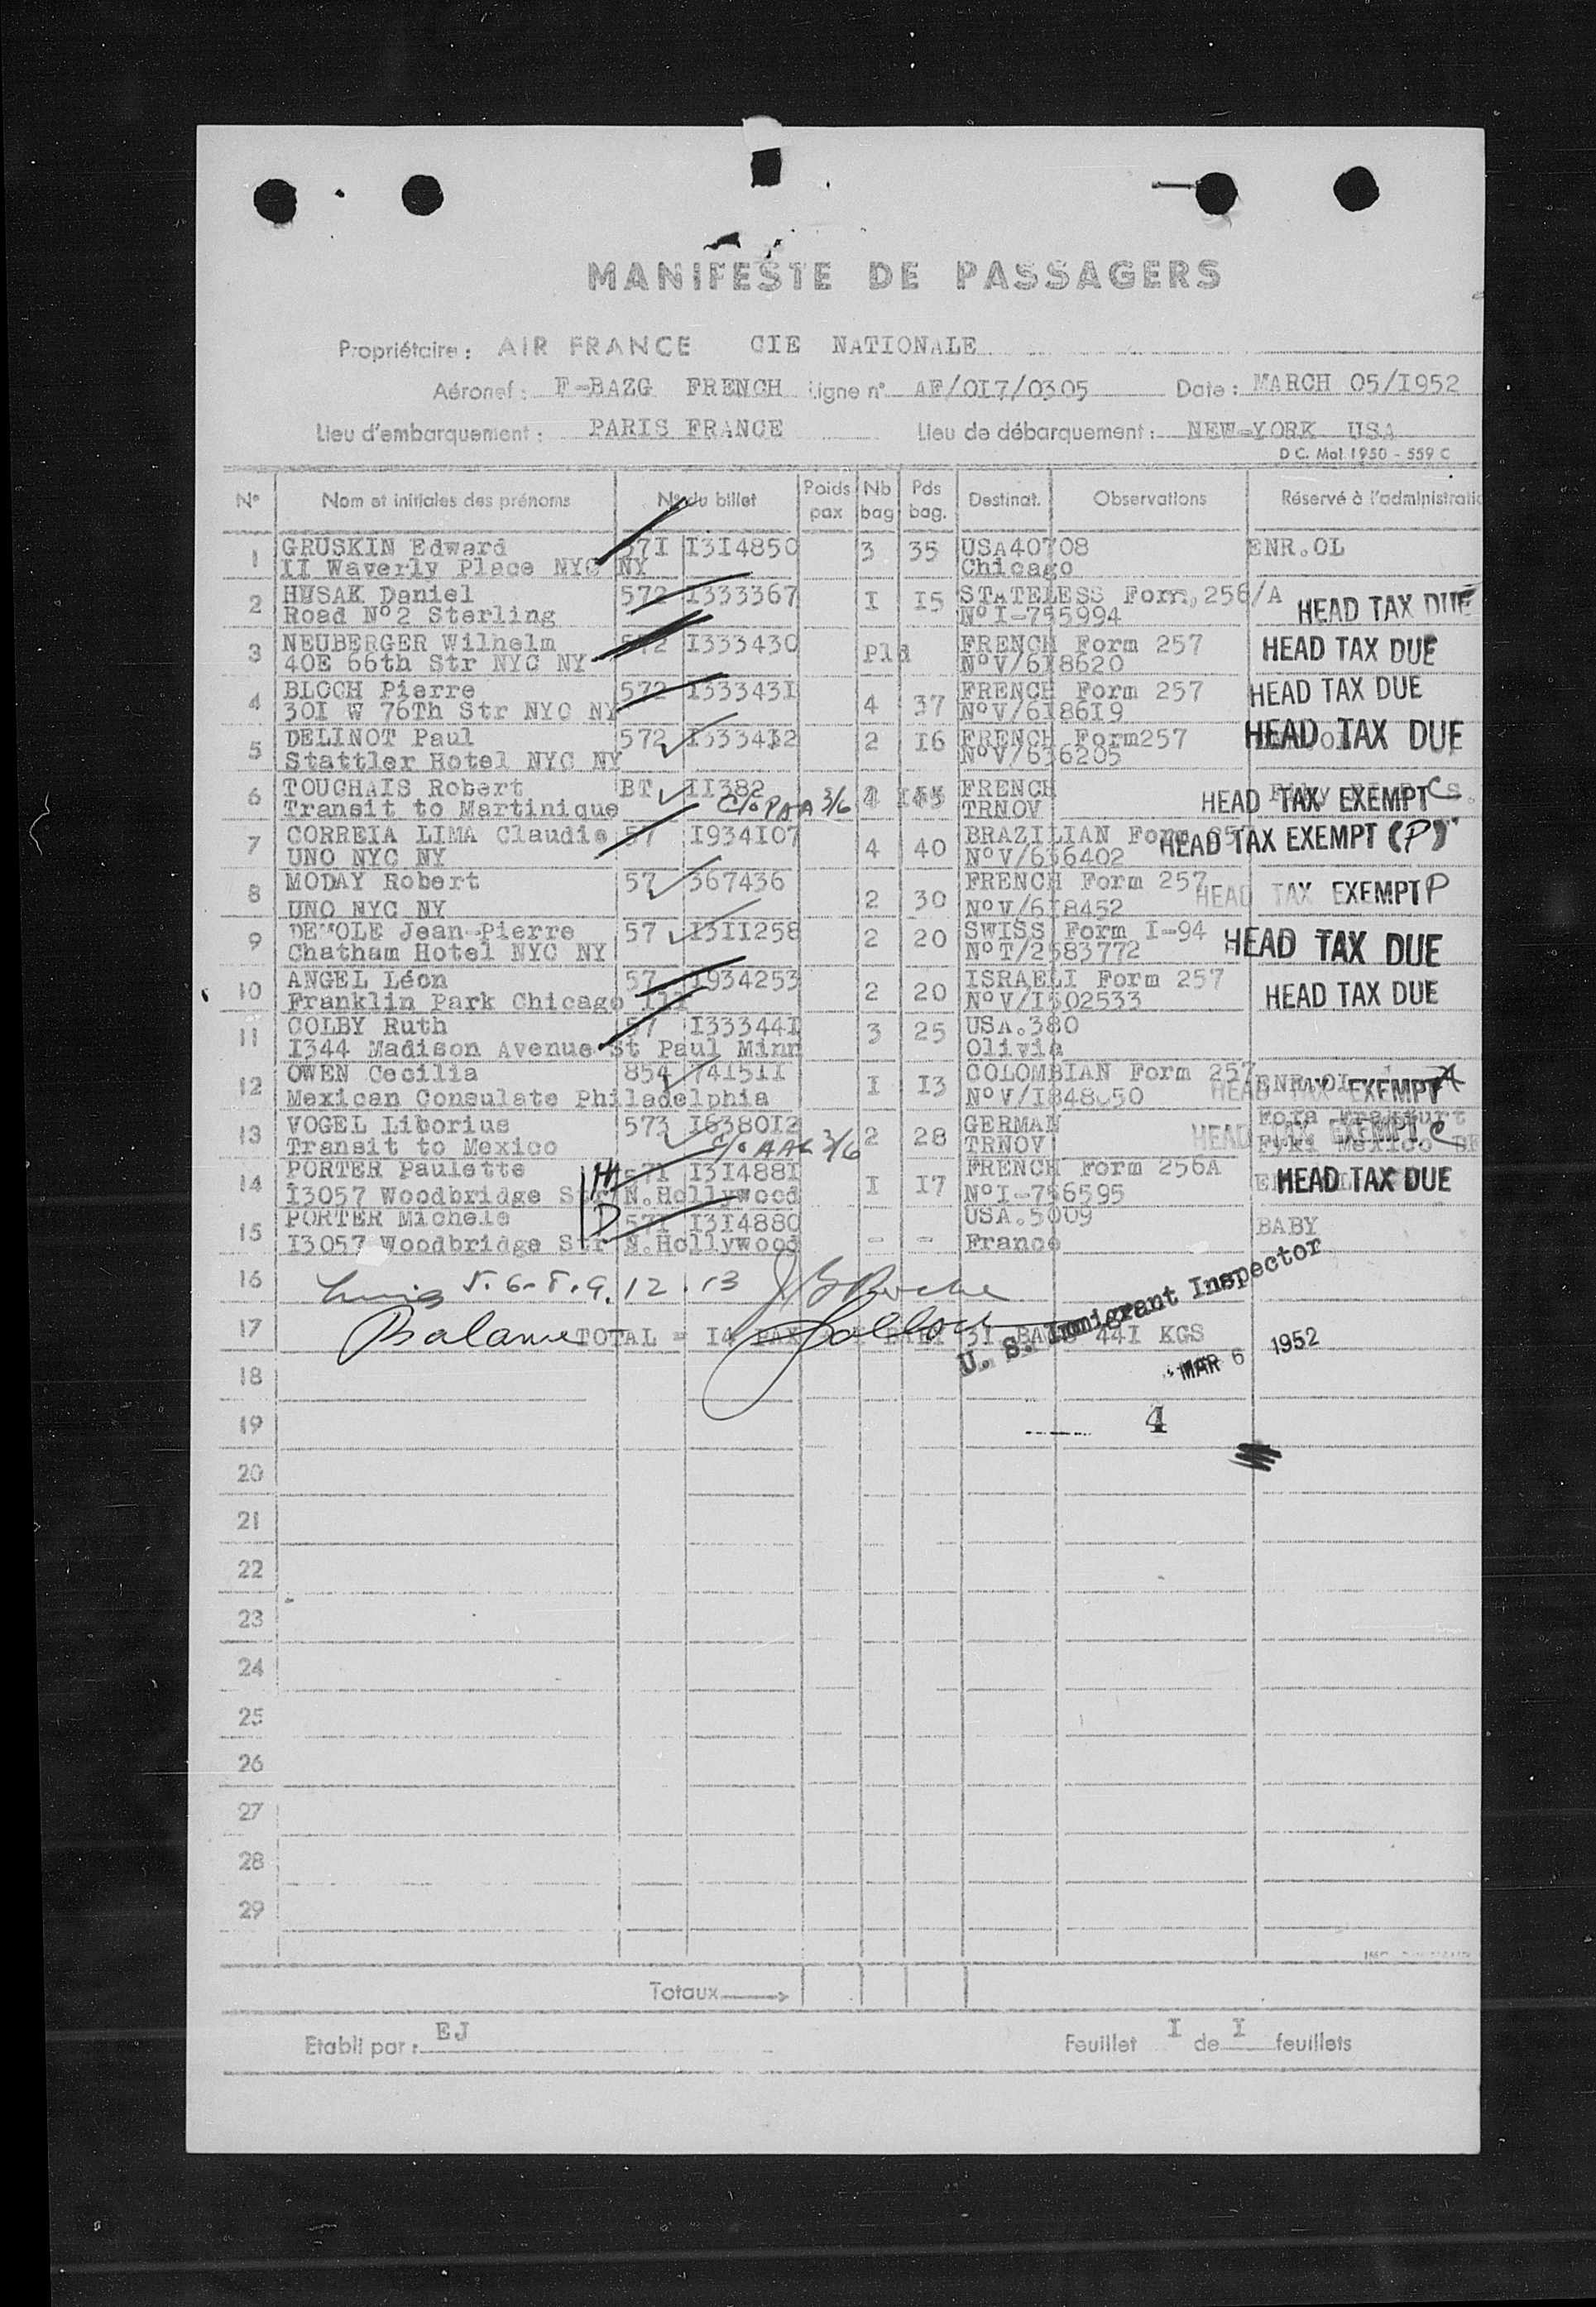 MANIFESTE DE PASSAGERS
Propriétaire : AIR FRANCE CIE NATIONALE
Aéronef : F-BAZG FRENCH Ligne n° AF/017/0305 Date : MARCH 05/I952
Lieu d'embarquement : PARIS FRANCE Lieu de débarquement : NEW-YORK USA
D C. Mol. 1950 - 559 C
N° Nom et initiales des prénoms N° du billet Poids pax Nb bag Pds bag. Destinat. Observations Réservé à l'administratio
1 GRUSKIN Edward 571 I3I4850 3 35 USA40708 ENR.OL
II Waverly Place NYC NY Chicago
2 HUSAK Daniel 572 I333367 I I5 STATELESS Form 256/A HEAD TAX DUE
Road N°2 Sterling N°I-755994
3 NEUBERGER Wilhelm 572 I333430 Pld FRENCH Form 257 HEAD TAX DUE
40E 66th Str NYC NY N°V/6I8620
4 BLOCH Pierre 572 I33343I 4 37 FRENCH Form 257 HEAD TAX DUE
30I W 76Th Str NYC NY N°V/6I86I9
5 DELINOT Paul 572 I333432 2 I6 FRENCH Form257 HEAD TAX DUE
Stattler Hotel NYC NY N°V/636205
6 TOUCHAIS Robert BT II382 FRENCH HEAD TAX EXEMPT C
Transit to Martinique C/o PAA 3/6 TRNOV
7 CORREIA LIMA Claudie 57 I934I07 4 40 BRAZILIAN Form 257 HEAD TAX EXEMPT (P)
UNO NYC NY N°V/636402
8 MODAY Robert 57 367436 2 30 FRENCH Form 257 HEAD TAX EXEMPT P
UNO NYC NY N°V/6I8452
9 DEMOLE Jean-Pierre 57 I3II258 2 20 SWISS Form I-94 HEAD TAX DUE
Chatham Hotel NYC NY N°T/2583772
10 ANGEL Léon 57 I934253 2 20 ISRAELI Form 257 HEAD TAX DUE
Franklin Park Chicago Ill N°V/I502533
11 COLBY Ruth 57 I33344I 3 25 USA.380
I344 Madison Avenue St Paul Minn Olivia
12 OWEN Cecilia 854 74I5II I I3 COLOMBIAN Form 257 ENR.OL HEAD TAX EXEMPT A
Mexican Consulate Philadelphia N°V/I848050
13 VOGEL Liborius 573 I6380I2 2 28 GERMAN HEAD TAX EXEMPT C
Transit to Mexico C/o AAL 3/6 TRNOV Fyki Mexico
14 PORTER Paulette M 57I I3I488I I I7 FRENCH Form 256A HEAD TAX DUE
I3057 Woodbridge Str N.Hollywood N°I-756595
15 PORTER Michele D 57I I3I4880 - - USA.5009 BABY
I3057 Woodbridge Str N.Hollywood France
16 5. 6. 8. 9. 12. 13
17 Balance TOTAL = I4 PAX I BABY 3I BAGS 44I KGS
U. S. Immigrant Inspector
MAR 6 1952
18
19 4
20
21
22
23
24
25
26
27
28
29
Totaux
Etabli par : EJ Feuillet I de I feuillets